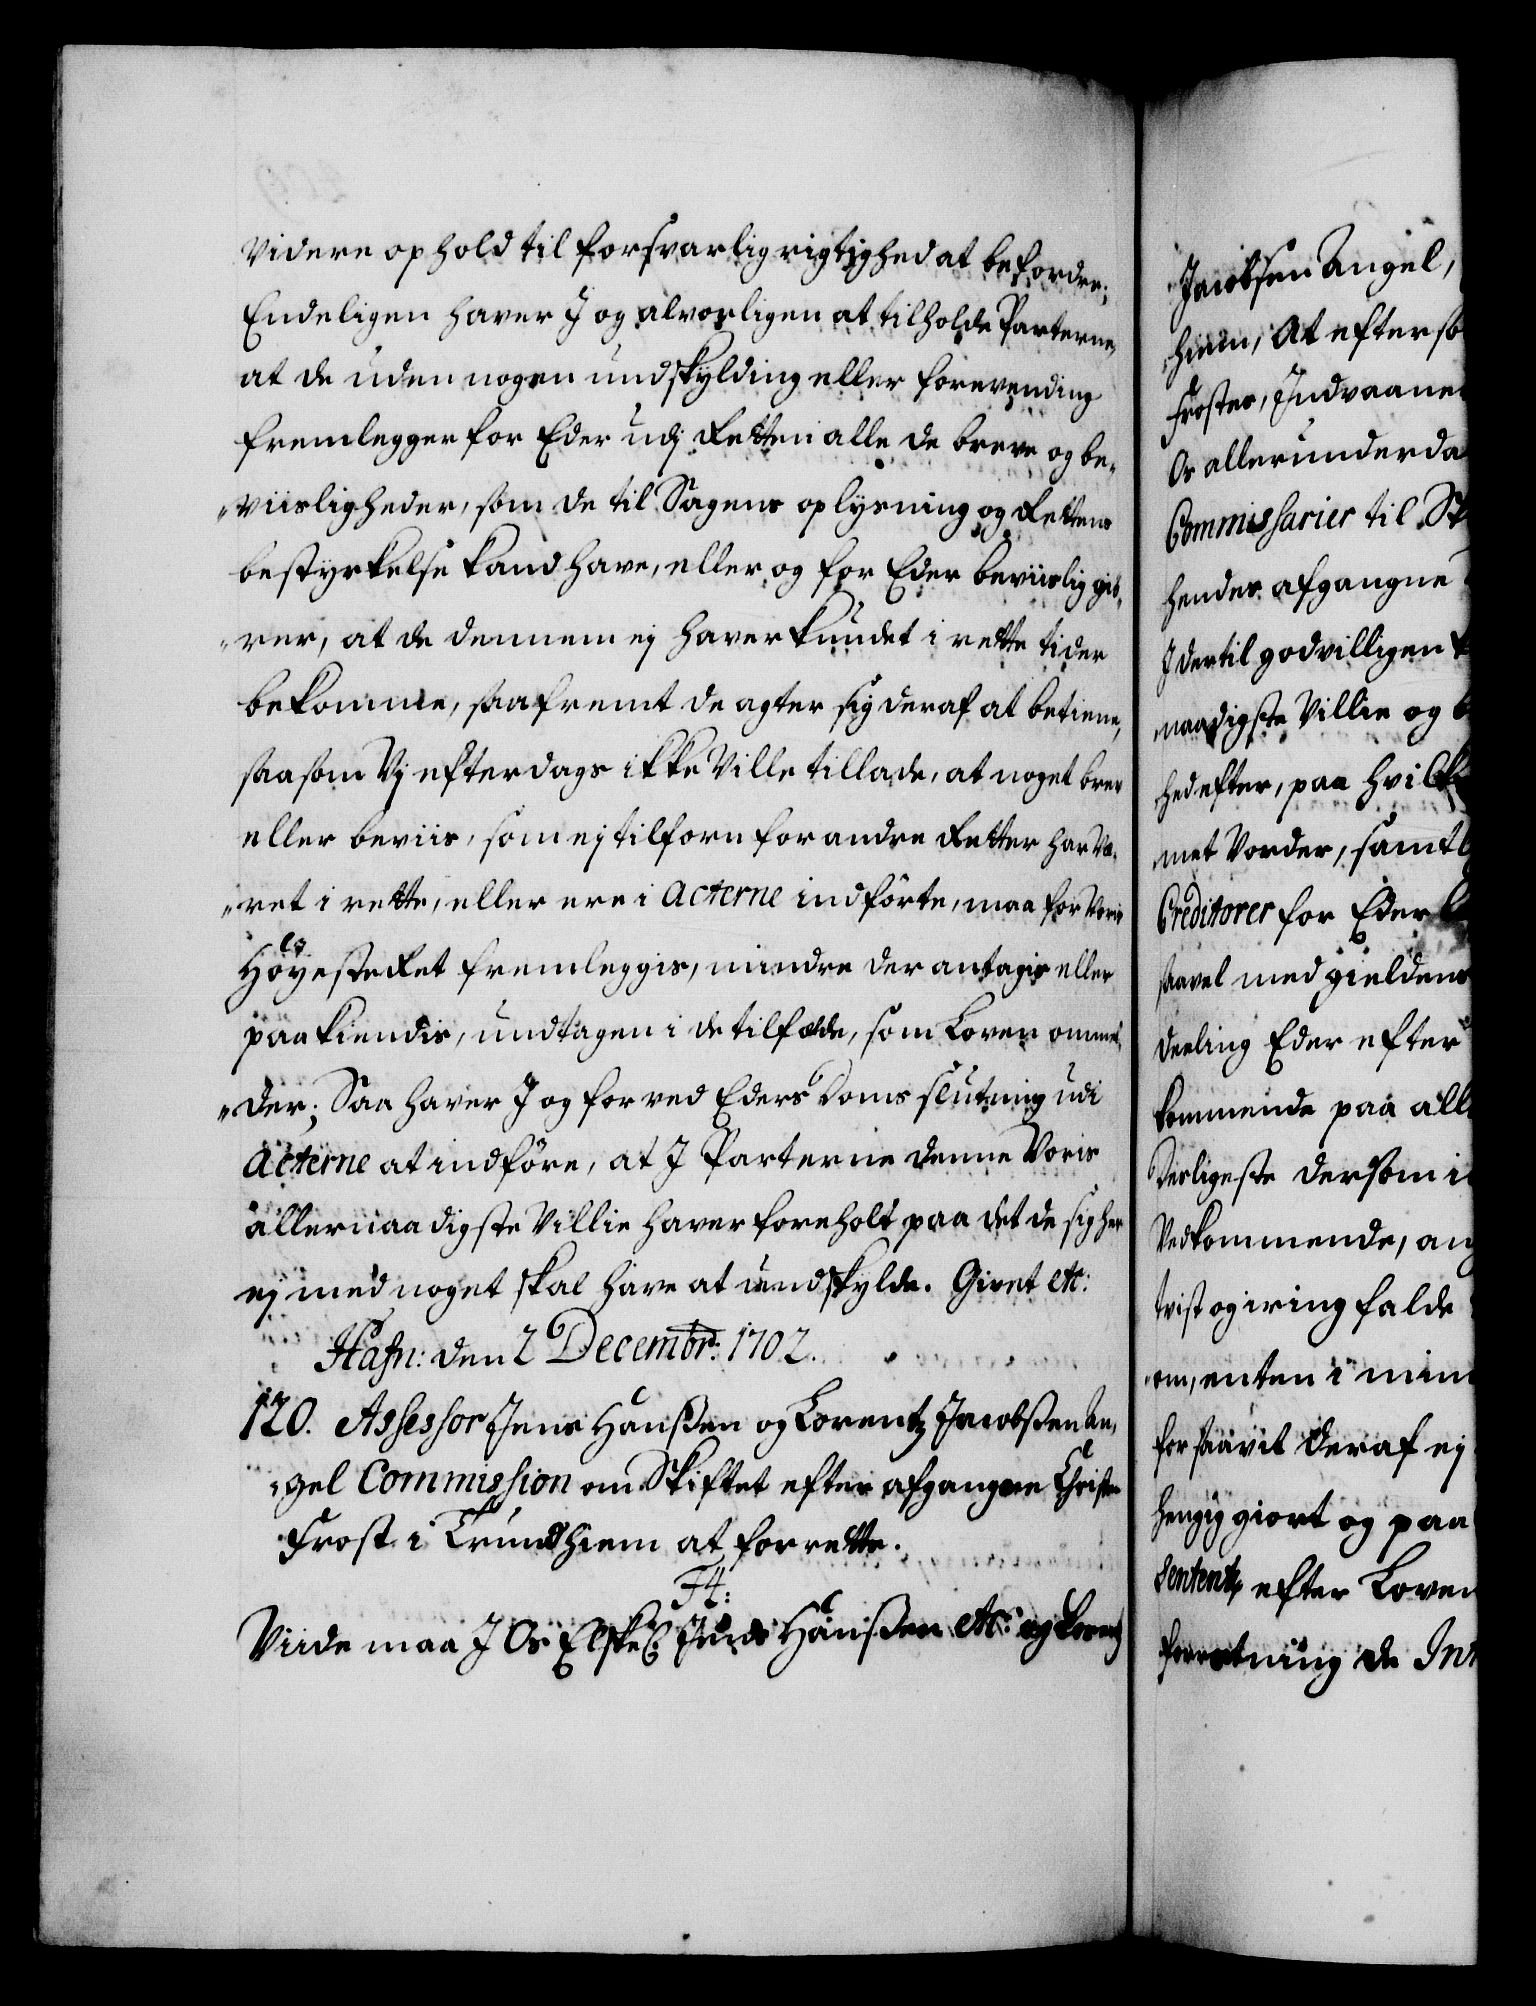 Videre ophold til forsvarlig rigtighed at befordre;
Endeligen haver J og alvorligen at tilholde Parterne,
at de uden nogen undskylding eller forevending
fremlegger for Eder udj Retten alle de breve og be-
viisligheder, som de til Sagens oplysning og Rettens
bestyrkelse kand have, eller og for Eder beviislig giø-
rer, at de dennem ej haver kundet i rette tider
bekomme, saafremt de agter sig deraf at betiene,
saasom Vj efterdags ikke Ville tillade, at noget brev
eller beviis, som ej tilforn for andre Retter har Væ-
ret i rette, eller ere i Acterne indførte, maa for Voris
HøyesteRet fremleggis, mindre der antagis eller
paakiendis, undtagen i de tilfælde, som Loven ommel-
der; Saa haver J og forved Eders Doms slutning udi
Acterne at indføre, at J Parterne denne Voris
allernaadigste Villie haver foreholt paa det de sig her
ej med noget skal have at undskylde. Givet etc:
Hafn: den 2 Decembr: 1702.
120. Assessor Jens Hanssen og Lorentz Jacobssen An-
gel Commission om Skiftet efter afgangne Christen
Frost i Trundhiem at forrette.
F4:
Viide maa J Os Elskel: Jens Hanssen etc: og Lorentz
Jacobsen Angel,
hiem, At eftersom
Frostes, Indvaaner
Os allerunderda
Commissarier til Sk
hendes afgangne
J dertil godvilligen
naadigste Villie og b
hed efter, paa hvilke
met Vorder, samtl
Creditorer for Eder
saavel med gieldens
deeling Eder efter
kommende paa all
Desligeste dersom i
Vedkommende, ang
tvist og irring falde
om, enten i min
for saavit deraf ej
hengig giort og paa
Sententz efter Loven
forretning de In